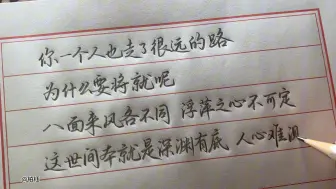 你一个人也走了很远的路
为什么要将就呢
八面来风各不同 浮萍之心不可定
这世间本就是深渊有底 人心难测